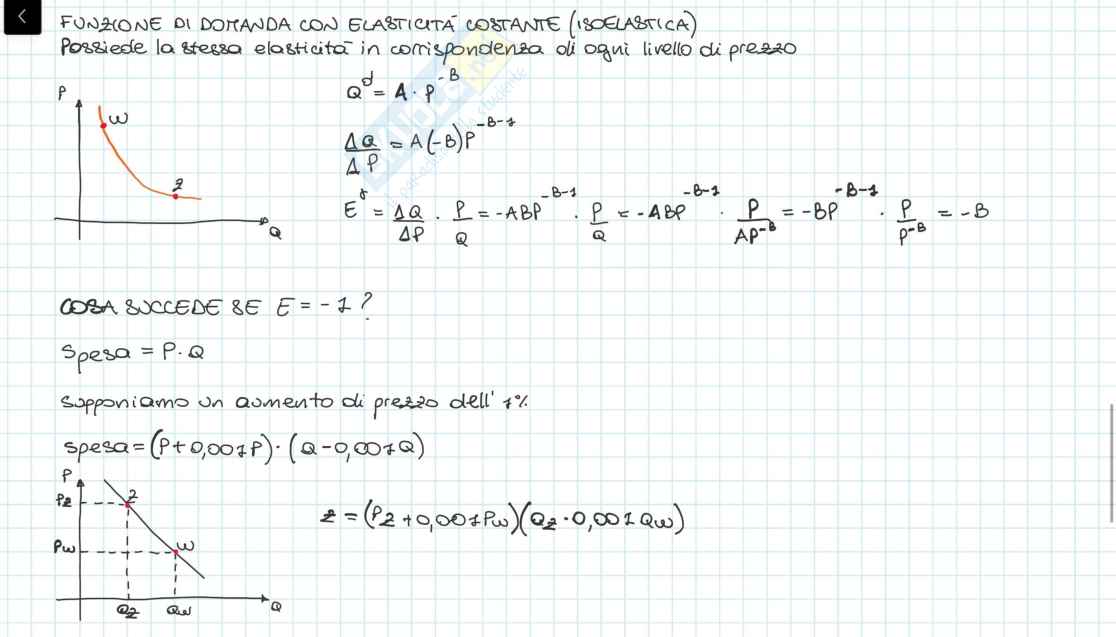 FUNZIONE DI DOMANDA CON ELASTICITÁ COSTANTE (ISOELASTICA)
Possiede la stessa elasticitá in corrispondenza di ogni livello di prezzo
Q^d = A · P^-B
ΔQ/ΔP = A(-B)P^-B-1
E^d = ΔQ/ΔP · P/Q = -ABP^-B-1 · P/Q = -ABP^-B-1 · P/AP^-B = -BP^-B-1 · P/P^-B = -B
P
W
Z
Q
COSA SUCCEDE SE E = -1?
Spesa = P·Q
Supponiamo un aumento di prezzo dell' 1%
Spesa = (P+0,001P)·(Q-0,001Q)
P
Pz
Z
Pw
W
Qz
Qw
Q
Z = (Pz+0,001Pw)(Qz·0,001Qw)